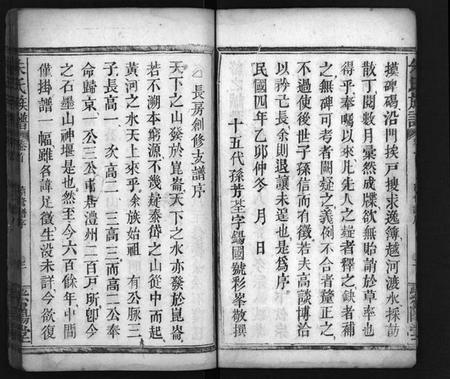 摸碑碣沿門挨戶搜求逸簿越河渡水採訪
散丁閱數月彙然成牒欲無貽誚於草率也
得乎奉囑以來凡先人之經者釋之缺者補
之無碑可考者闕疑之義例不合者釐正之
不過使後世子孫信而有徵若夫高談博洽
以矜吾長余則退讓未遑也是爲序
民國四年乙卯仲冬 月 日
十五代孫芳荃字錫國號彩峯敬撰
長房創修支譜序
天下之山發於崑崙天下之水亦發於崑崙
若不溯本窮源不幾疑泰岱之山從中而起
黃河之水天上來乎余族始祖 有公豚三
子長高一 次高二 三高三而高二公奉
命歸京一公三公甫居澧州二百戶所卽今
之石壘山神堰是也然至今六百餘年中間
僅掛譜一幅雖名諱足徵生没未詳今欲復
朱氏族譜 卷首